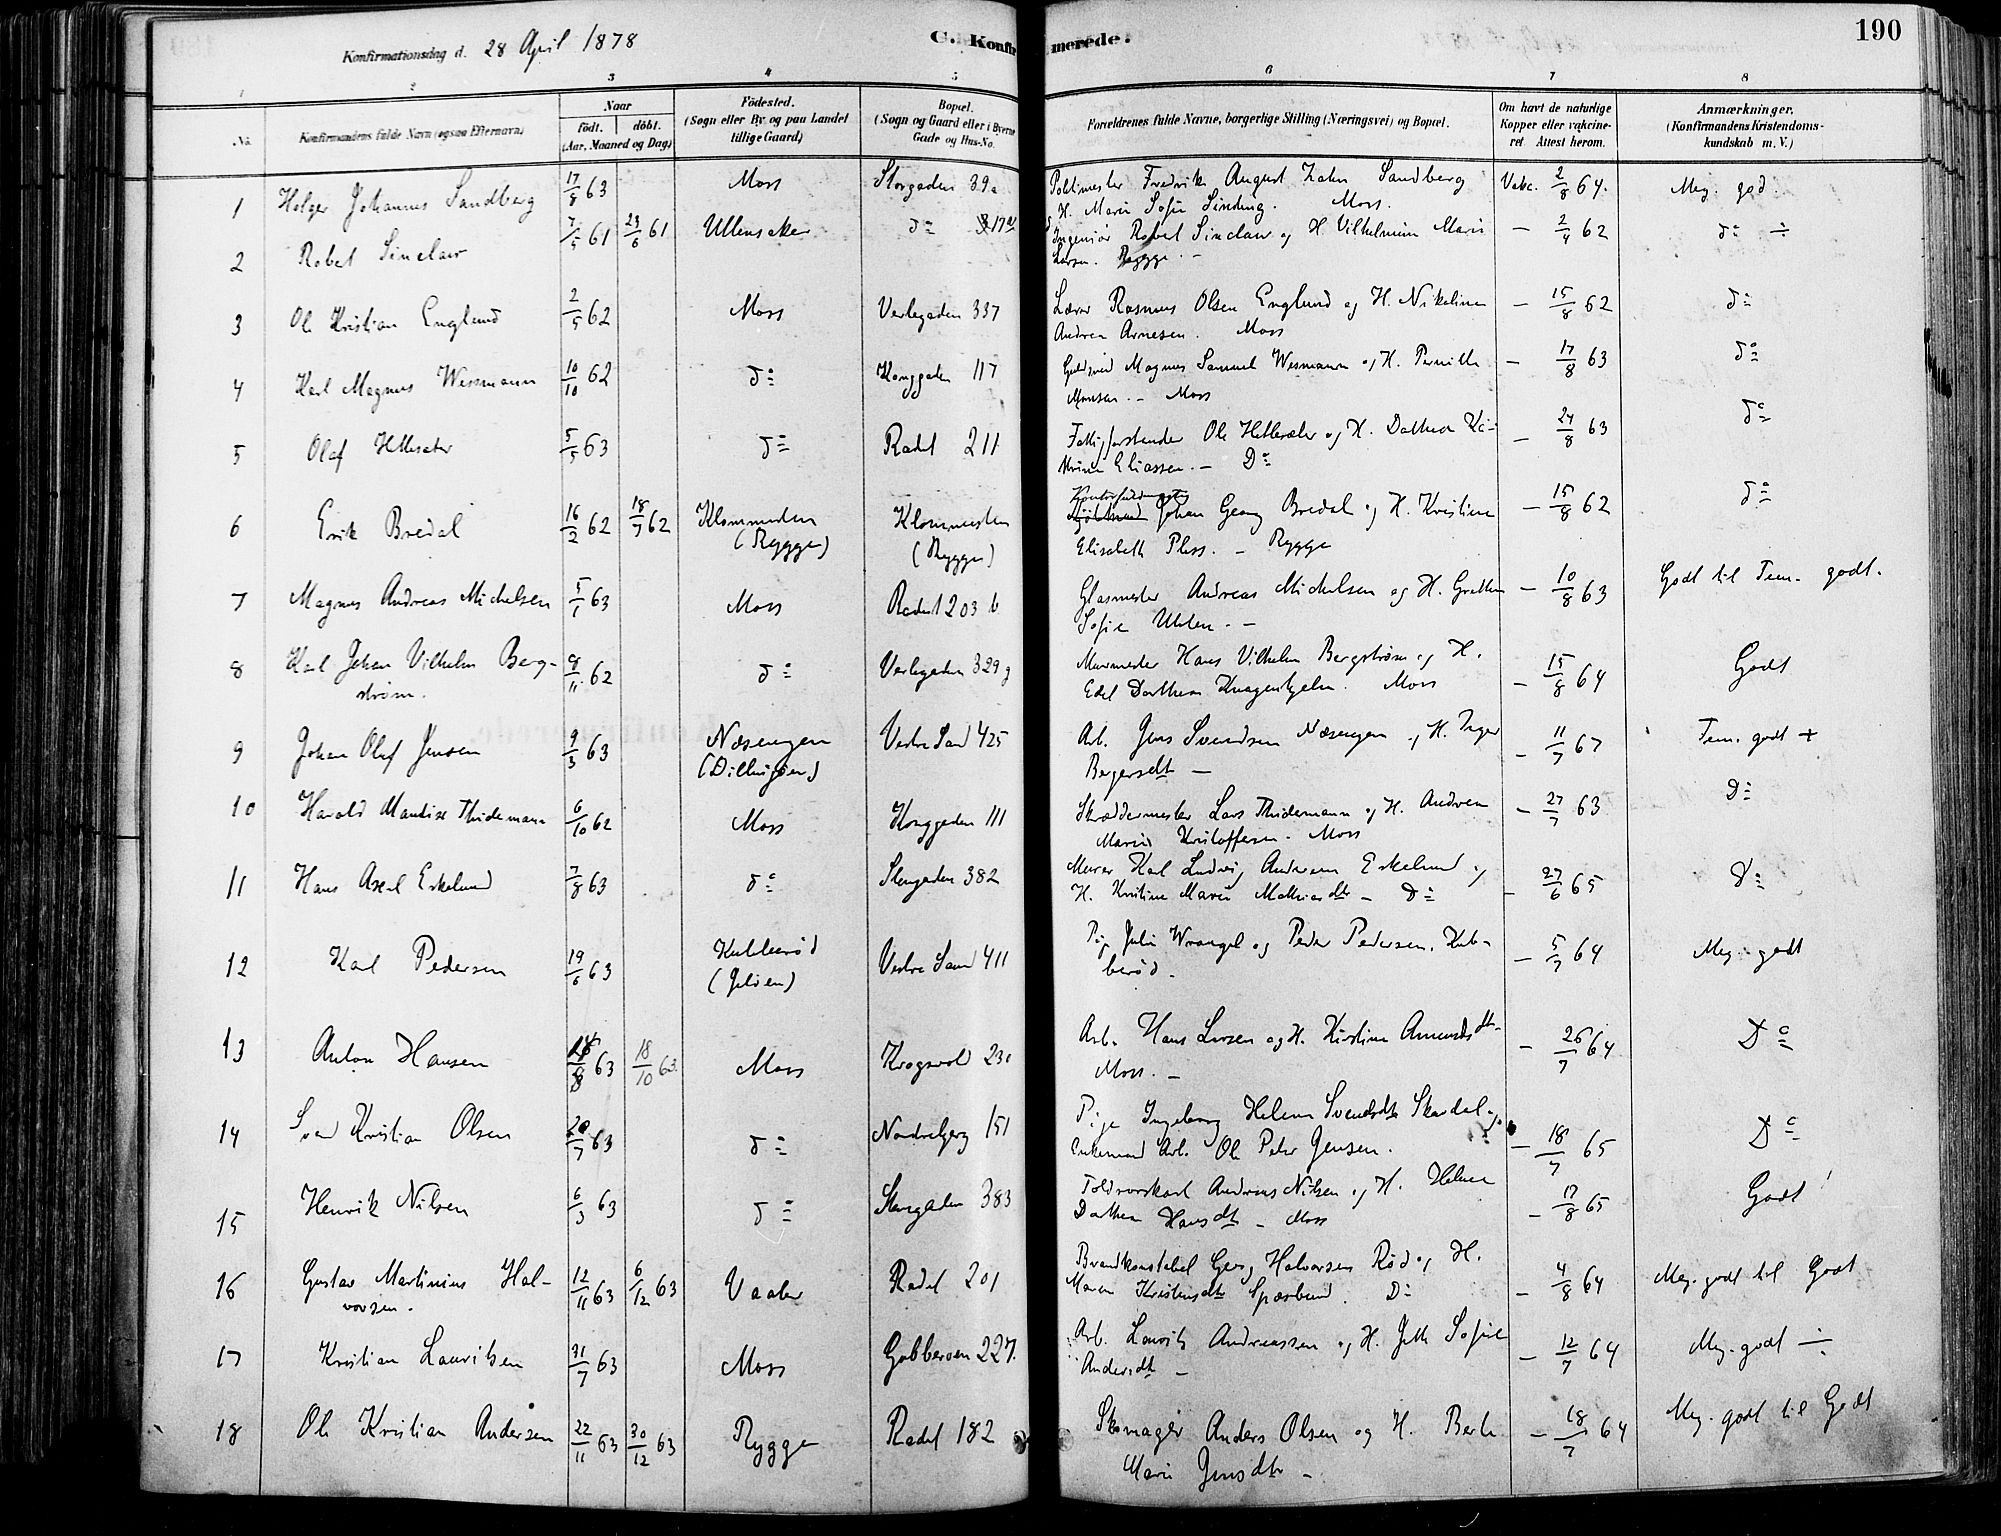 Konfirmationsdag d. 28 April 1878 C. Konfirmerede. 190
1 2 3 4 5 6 7 8
No. Konfirmandens fulde Navn (ogsaa Efternavn) Naar födt. döbt. (Aar, Maaned og Dag) Födested. (Sogn eller By og paa Landet tillige Gaard) Bopæl. (Sogn og Gaard eller i Byerne Gade og Hus-No. Forældrenes fulde Navne, borgerlige Stilling (Næringsvei) og Bopæl. Om havt de naturlige Kopper eller vakcineret. Attest herom. Anmærkninger. (Konfirmandens Kristendomskundskab m. V.)
1 Holger Johannes Sandberg 17/8 63 Moss Storgaden 39a Politimester Fredrik August Zahn Sandberg Vakc. 2/8 64. Meg. god.
H. Marie Sofie Sinding. Moss.
2 Robert Sinclair 7/5 61 23/6 61 Ullensaker do Ingeniør Robert Sinclair og H. Vilhelmine Marie - 2/4 62 do ÷
Larsen. Rygge. -
3 Ole Kristian Englund 2/5 62 Moss Verlegaden 337 Lærer Rasmus Olsen Englund og H. Nikoline - 15/8 62 do
Andrea Arnesen. Moss
4 Karl Magnus Wessmann 10/10 62 do Konggaden 117 Guldsmed Magnus Samuel Wesmann og H. Pernille - 17/8 63 do
Monsen. - Moss
5 Olaf Hellesæter 5/5 63 do Radet 211 Fattigforstander Ole Hellesæter og H. Dorthea Ka- - 24/8 63 do
trine Eliassen. - Do
6 Erik Bredal 16/2 62 18/7 62 Klommesten (Rygge) Klommesten (Rygge) Johan Georg Bredal og H. Kristine - 15/8 62 do
Elisabeth Pless. - Rygge
7 Magnus Andreas Michelsen 5/1 63 Moss Radet 203 b Glasmester Andreas Michelsen og H. Grethe - 10/8 63 Godt til Tem. godt.
Sofie
8 Karl Johan Vilhelm Berg- 8/11 62 do Verlegaden 329 g Murmester Hans Vilhelm Bergstrøm og H. - 15/8 64 Godt
strøm. Edel Dorthea Knagenhjelm. Moss
9 Johan Olaf Jensen 9/3 63 Næsengen (Dillingøen) Vestre Sand 425 Arb. Jens Svendsen Næsengen og H. Inger - 11/7 67 Tem. godt +
Bergersdt -
10 Harald Mauritz Thidemann 6/10 62 Moss Konggaden 111 Skræddermester Lars Thidemann og H. Andrea - 27/7 63 Do
Marie Kristoffersen. Moss
11 Hans Axel Eskelund 7/8 63 do Stengaden 382 Murer Karl Ludvig Andreas Eskelund og - 27/6 65 Do
H. Kristine Marie Mathiasdtr - Do
12 Karl Pedersen 19/6 63 Kubberød (Jeløen) Vestre Sand 411 Pige Julie Wrangel og Peder Pedersen. Kub- - 5/7 64 Meg. godt
berød.
13 Anton Hansen 63 18/10 63. Moss Krogsvold 230 Arb. Hans Larsen og H. Kirstine Amundsdtr. - 26/7 64 Do
Moss. -
14 Sven Kristian Olsen 20/7 63 do Nordrebjerg 151 Pige Ingeborg Helene Svendsdtr Skardal og - 18/7 65 Do
Enkemand Arb. Ole Peter Jensen.
15 Henrik Nilsen 6/3 63 do Stengaden 383 Toldrorskarl Andreas Nilsen og H. Helene - 17/8 65 Godt
Dorthea Hansdt - Moss
16 Gustav Martinius Hal- 12/11 63 6/12 63 Vaaler Radet 201 Brandkonstabel Georg Halvorsen Rød og H. - 4/8 64 Meg. godt til Godt
vorsen. Maren Kristensdtr Spærbund. Do
17 Kristian Lauritsen 31/7 63 Moss Gobberoen 227. Arb. Laurits Andreassen og H. Jette Sofie - 12/7 64 Meg. godt ÷
Andersdt -
18 Ole Kristian Andersen 22/11 63 30/12 63 Rygge Radet 182 Skomager Anders Olsen og H. Berte - 18/7 64 Meg. godt til Godt
Marie Jensdtr -